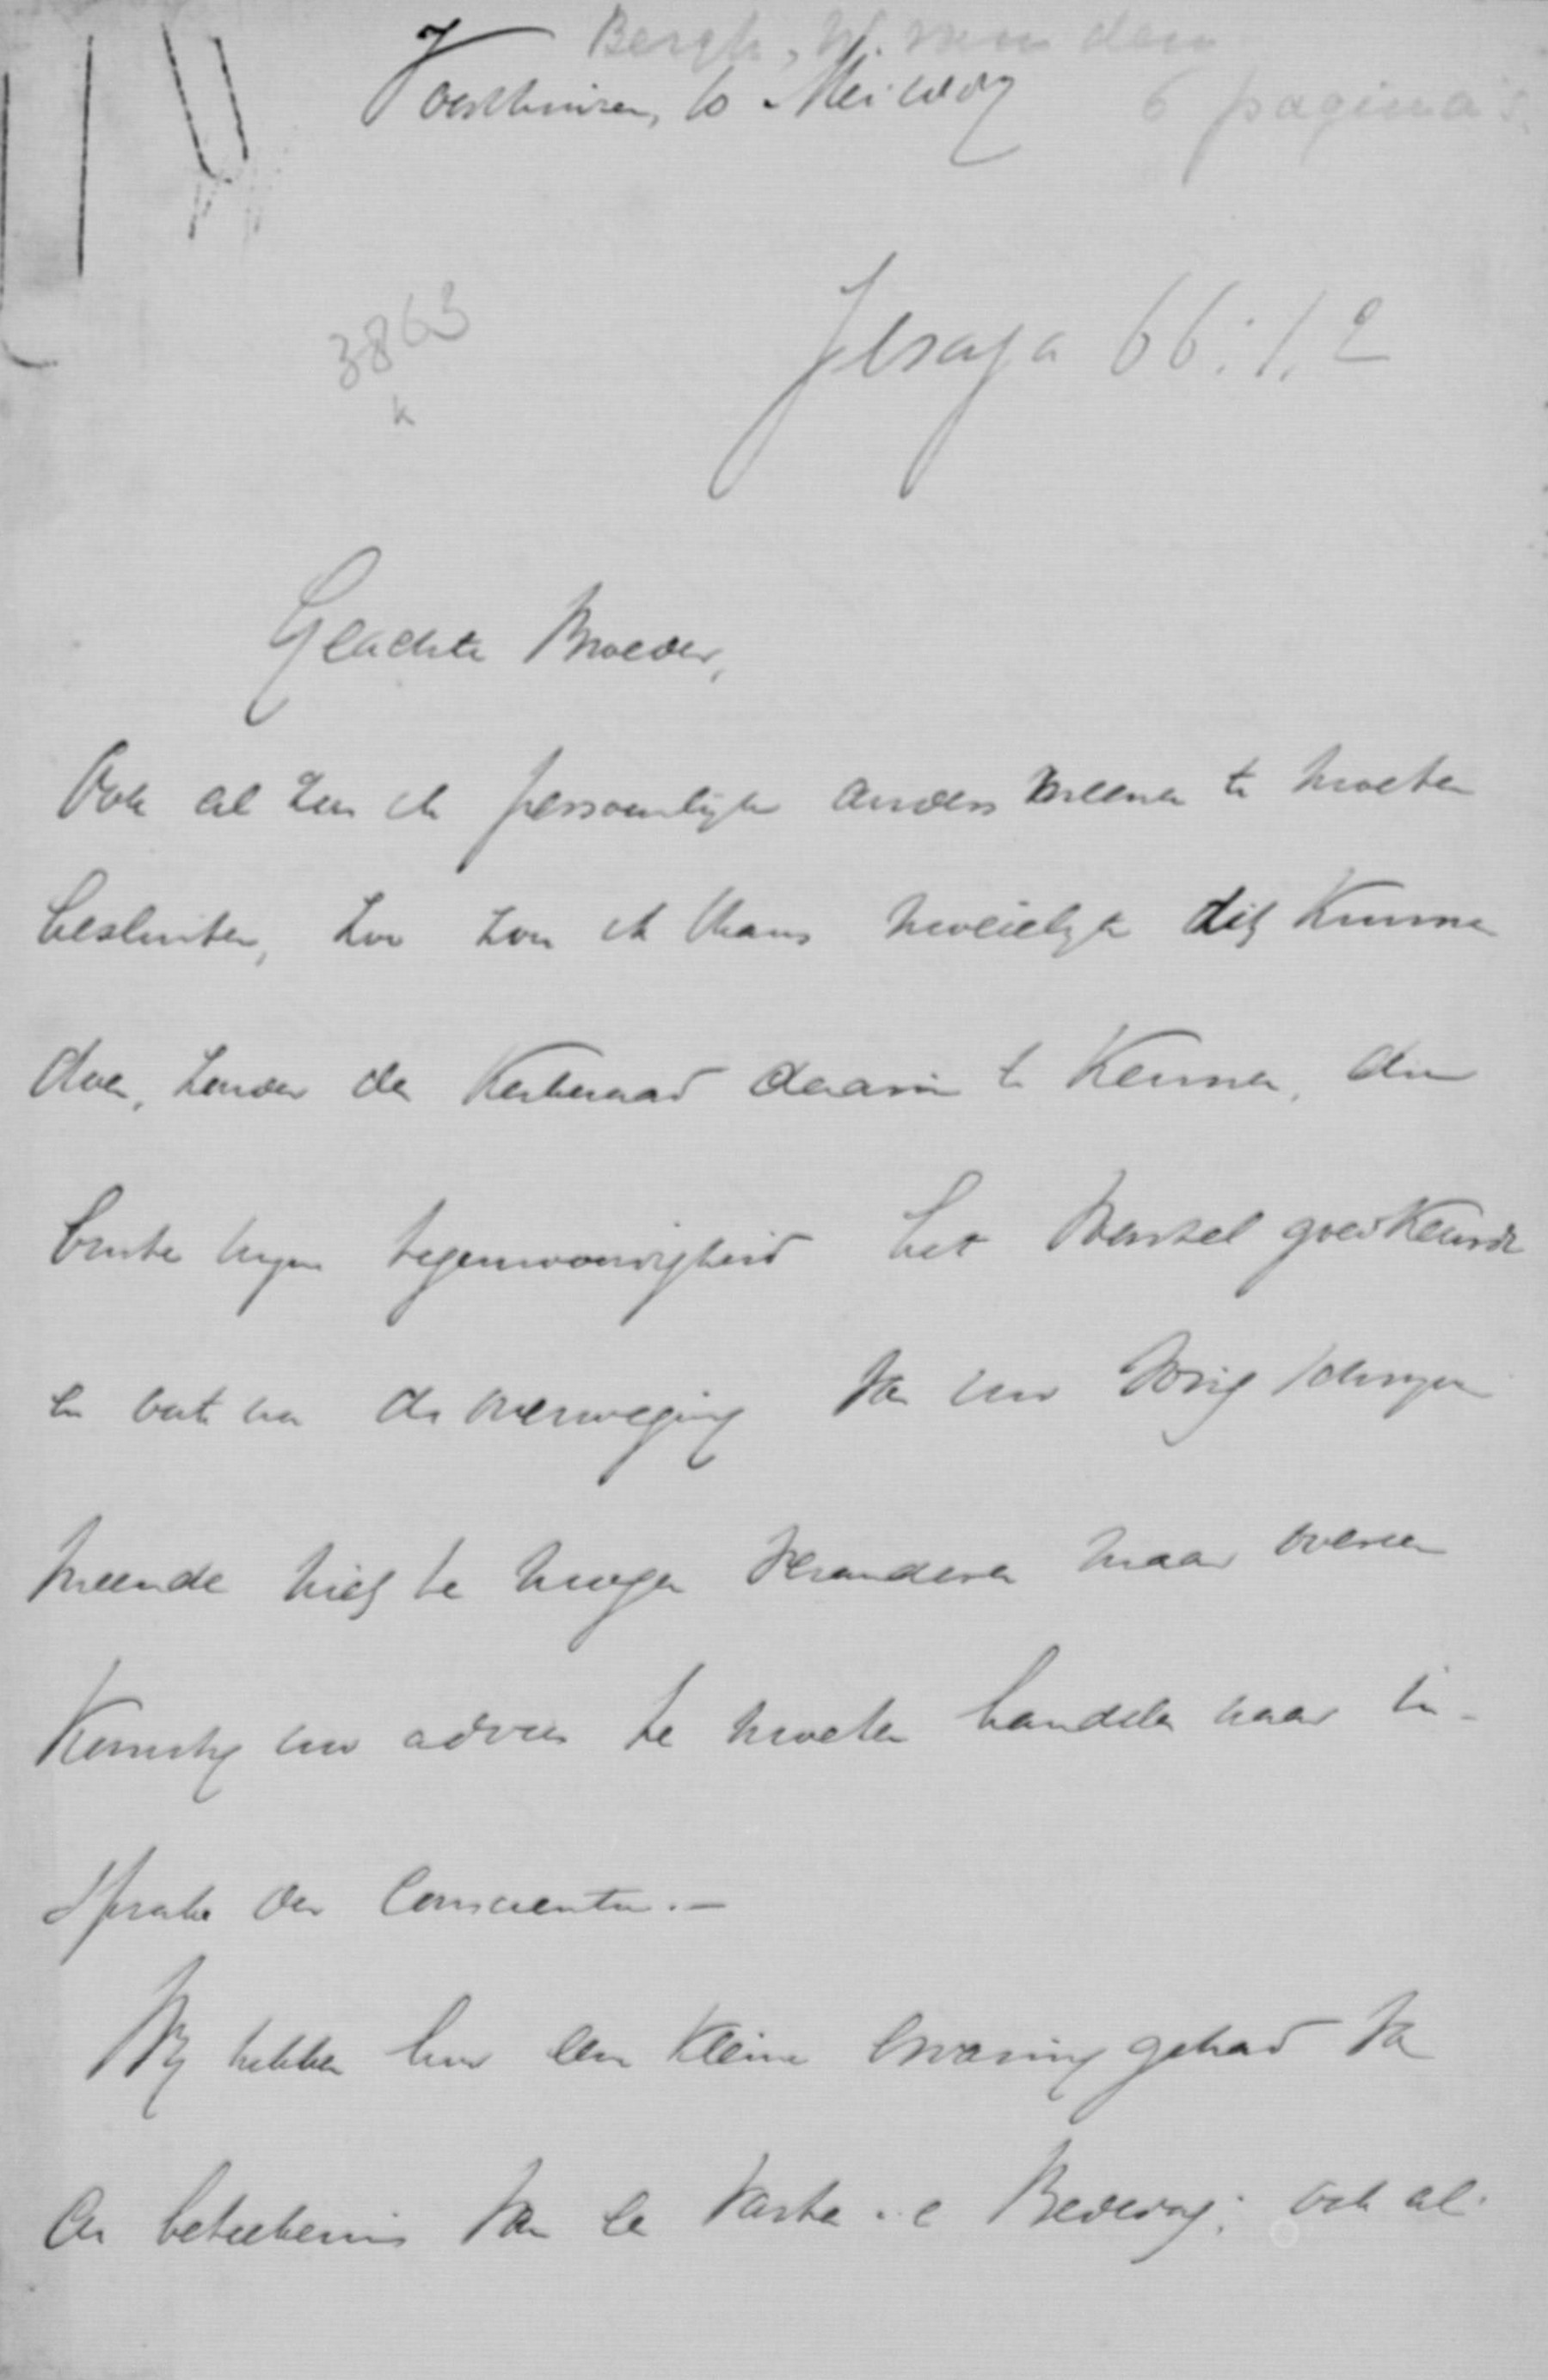 Bergh, W. van den
Voorthuizen, 10 Mei
6 pagina's.
3863
k
Jesaja 66:1,2
Geachte Broeder,
Ook al zou ik persoonlijk anders meenen te moeten
besluiten, zoo zou ik thans moeielijk dit kunnen
doen, zonder de Kerkeraad daarin te kennen, die
buiten mijne tegenwoordigheid het voorstel goedkeurde
en ook na de overweging van uw
meende niets te mogen veranderen maar overeen
komstig uw advies te moeten handelen naar in-
spraak der Conscientie.-
Wij hebben hier een kleine ervaring gehad van
de beteekenis van de Vasten- e Bededag; ook al